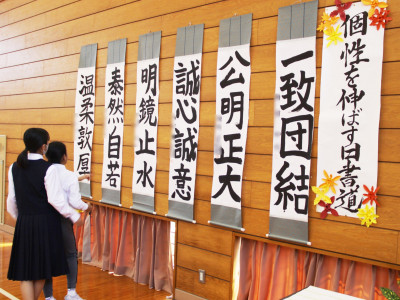 個性を伸ばす日書道
一致団結
公明正大
誠心誠意
明鏡止水
泰然自若
温柔敦厚